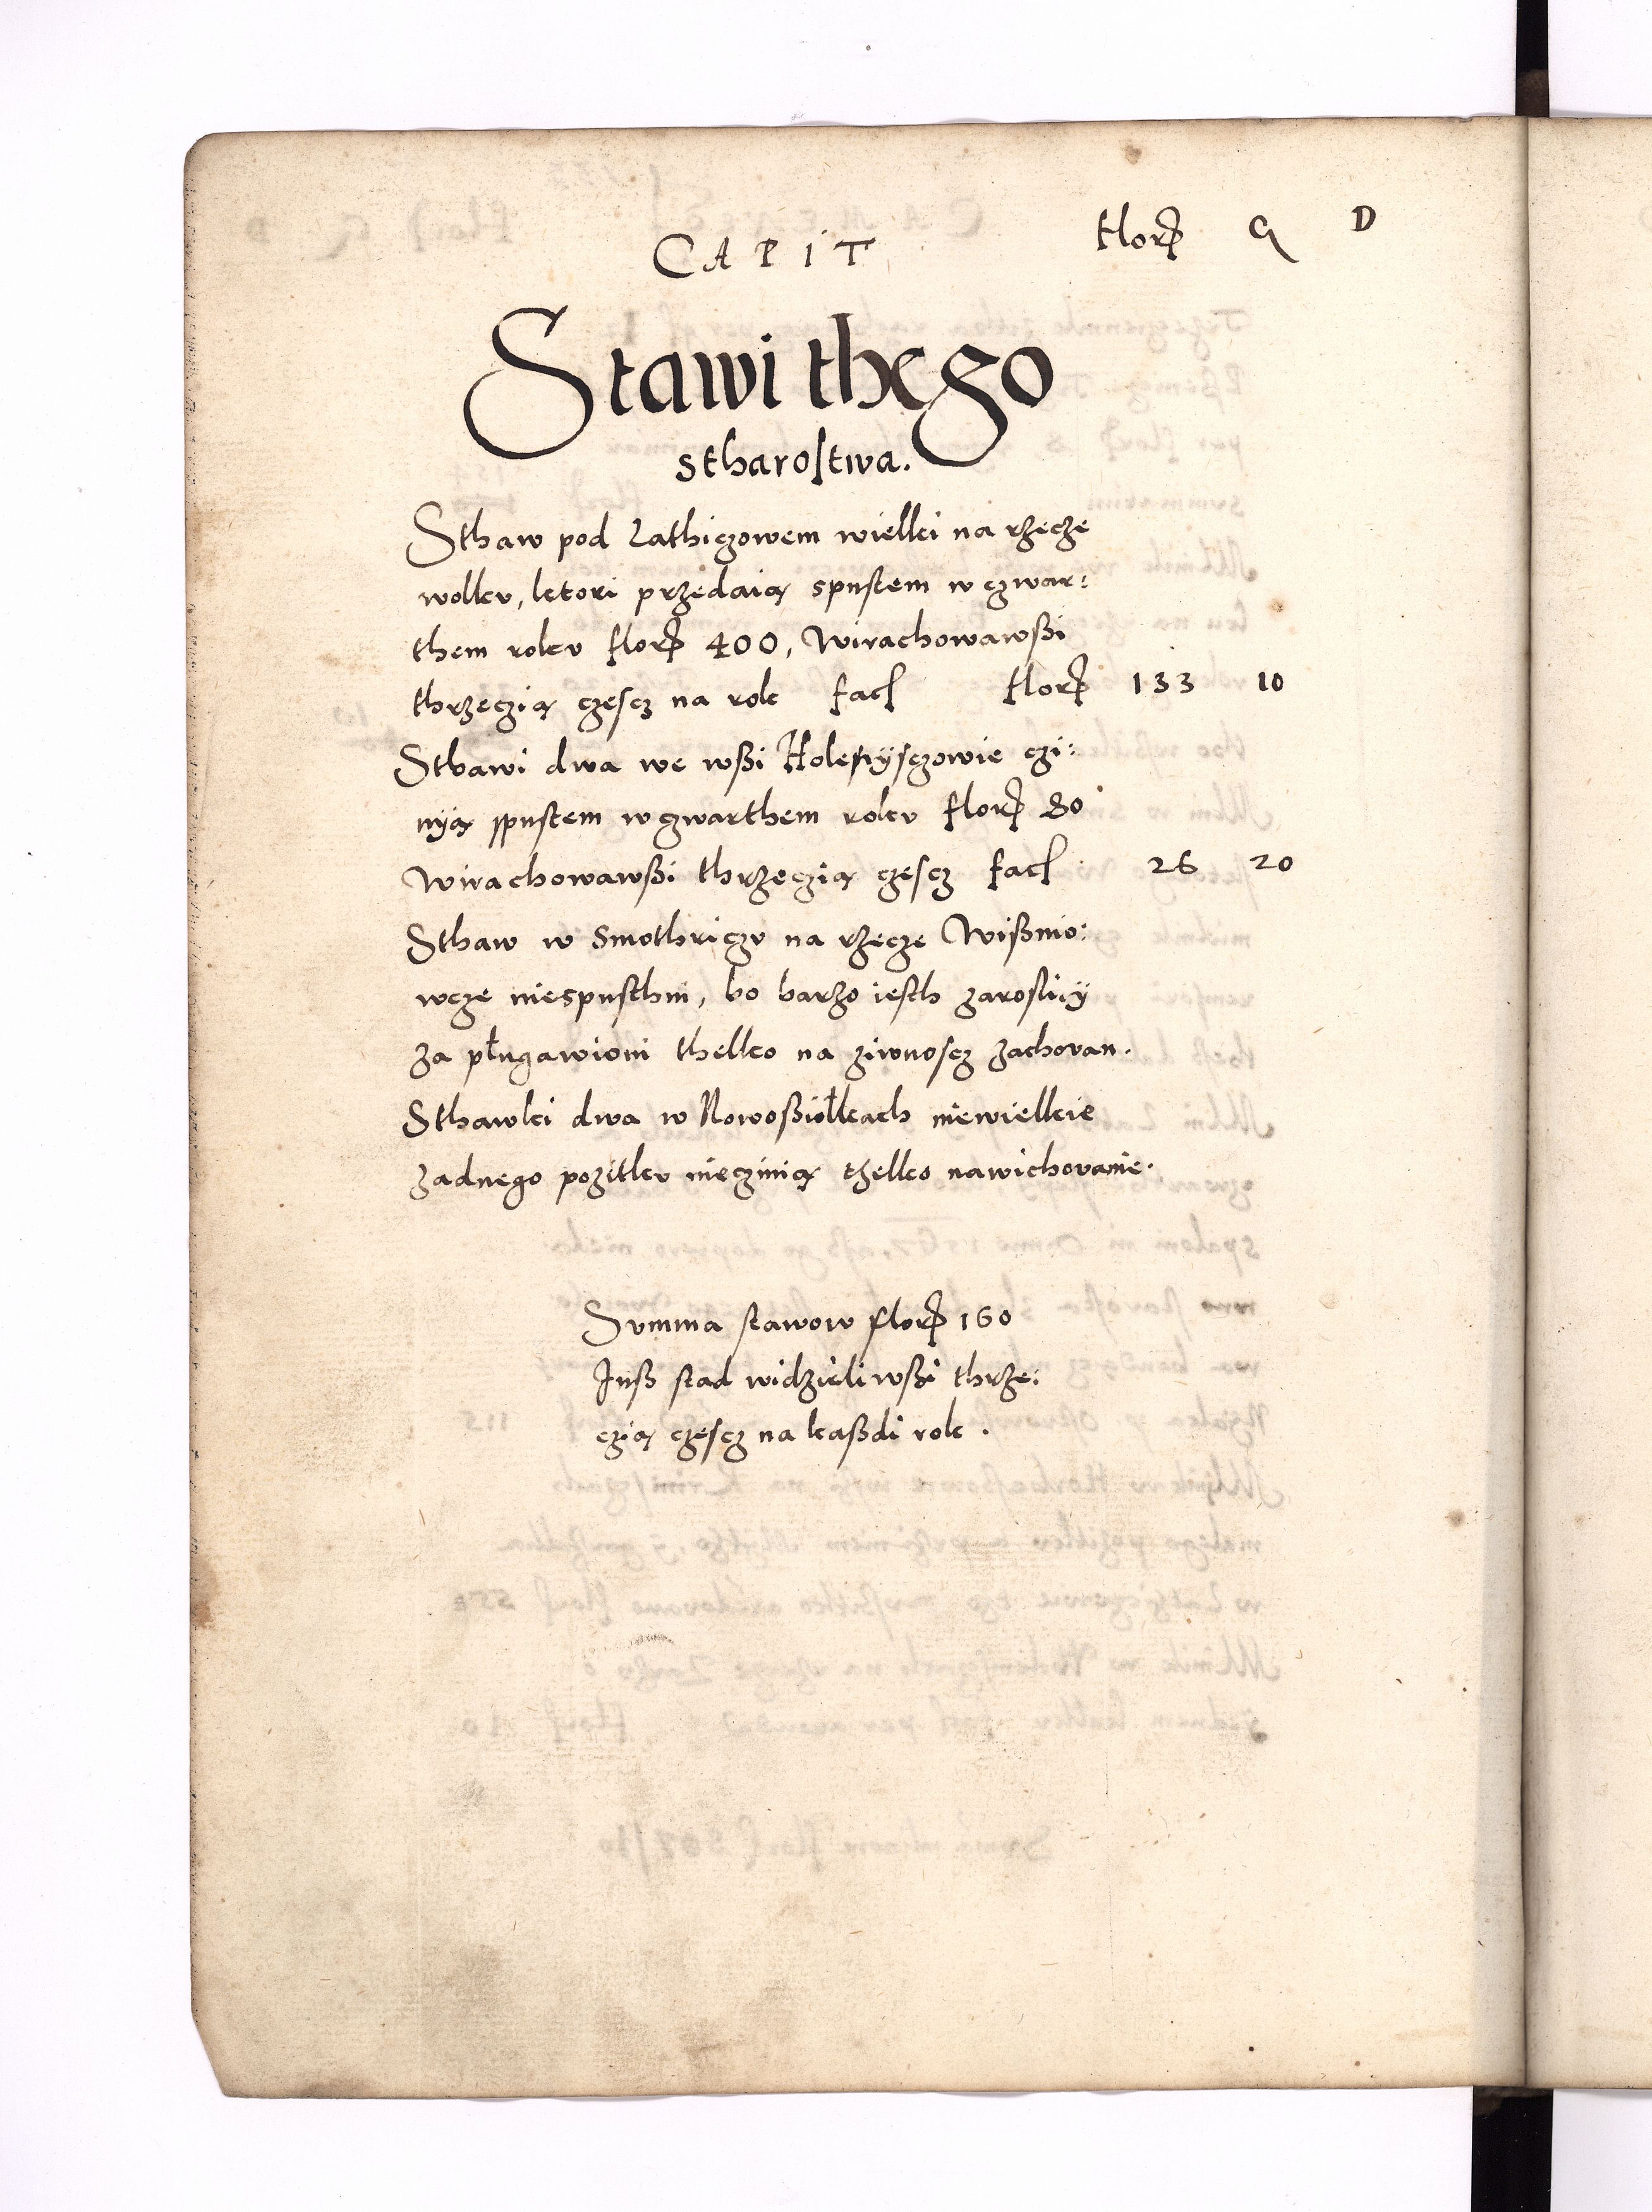 CAPIT flor G D
Stawi thego
stharostwa.
Sthaw pod Lathiczowem wielki na rzecze
wolku, ktori przedaią spustem w czwar:
them roku flor 400, Wirachowawßi
thrzeczią czescz na rok facl flor 133 10
Sthawi dwa we wßi Holenysczowie czi:
nyą spustem w czwarthem roku flor 80
Wirachowawßi thrzeczią czescz facl 26 20
Sthaw w Smothriczu na rzecze Wißnio:
wcze niespusthni, bo barzo iesth zarosliy
za plugawioni thelko na ziwnoscz zachovan.
Sthawki dwa w Nowoßiolkach niewielkie
zadnego pozitku nieczinią thelko nawichovanie.
Summa stawow flor 160
Juß stad widzieliwßi thrze:
czią czescz na kaßdi rok.